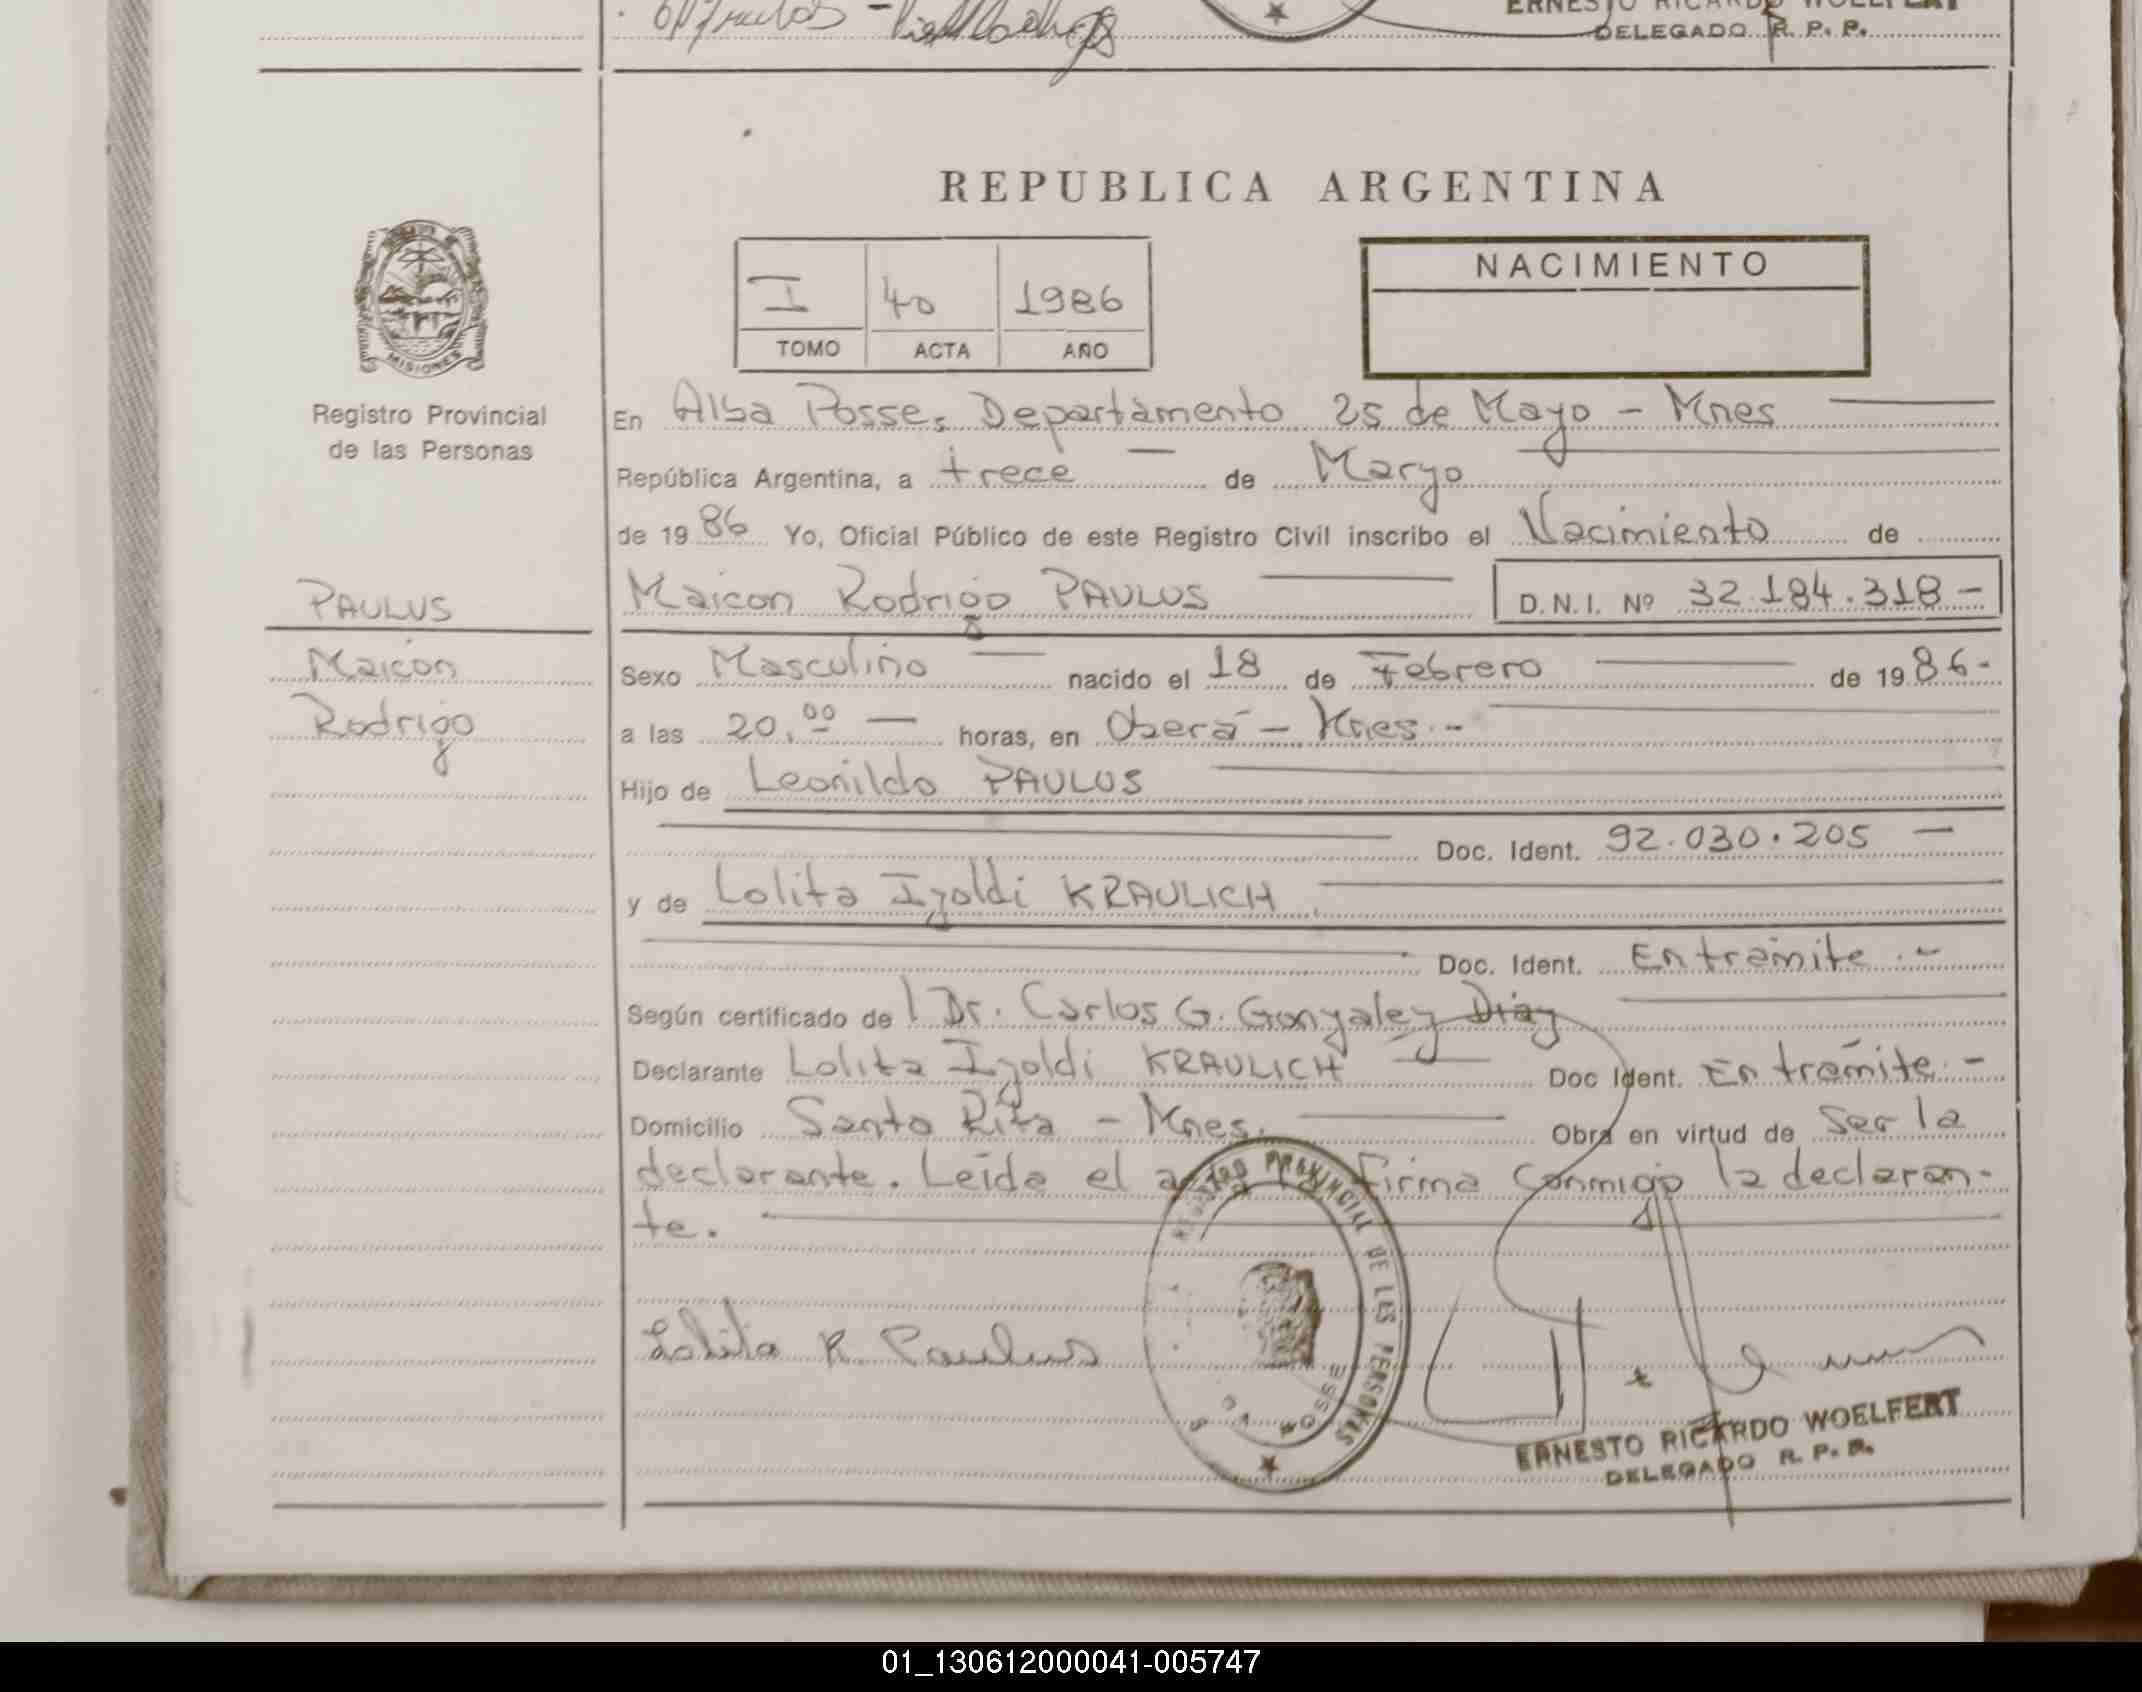 ERNESTO RICARDO WOELFERT
DELEGADO R. P. P.
REPUBLICA ARGENTINA
I 40 1986
TOMO ACTA AÑO
NACIMIENTO
MISIONES
Registro Provincial
de las Personas
PAULUS
Maicon
Rodrigo
En Alba Posse, Departamento 25 de Mayo - Mnes
República Argentina, a trece — de Marzo
de 1986 Yo, Oficial Público de este Registro Civil inscribo el Nacimiento de
Maicon Rodrigo PAULUS — D.N.I. Nº 32.184.318 -
Sexo Masculino — nacido el 18 de Febrero — de 1986-
a las 20.00 — horas, en Oberá - Mnes.-
Hijo de Leonildo PAULUS
Doc. Ident. 92.030.205 —
y de Lolita Izoldi KRAULICH
Doc. Ident. En trámite.-
Según certificado del Dr. Carlos G. Gonzalez Diaz
Declarante Lolita Izoldi KRAULICH — Doc Ident. En trámite.-
Domicilio Santa Rita - Mnes. — Obra en virtud de ser la
declarante. Leída el firma conmigo la declaran-
te.
REGISTRO PROVINCIAL DE LAS PERSONAS
POSSE
Lolita K. Paulus
ERNESTO RICARDO WOELFERT
DELEGADO R. P. P.
01_130612000041-005747